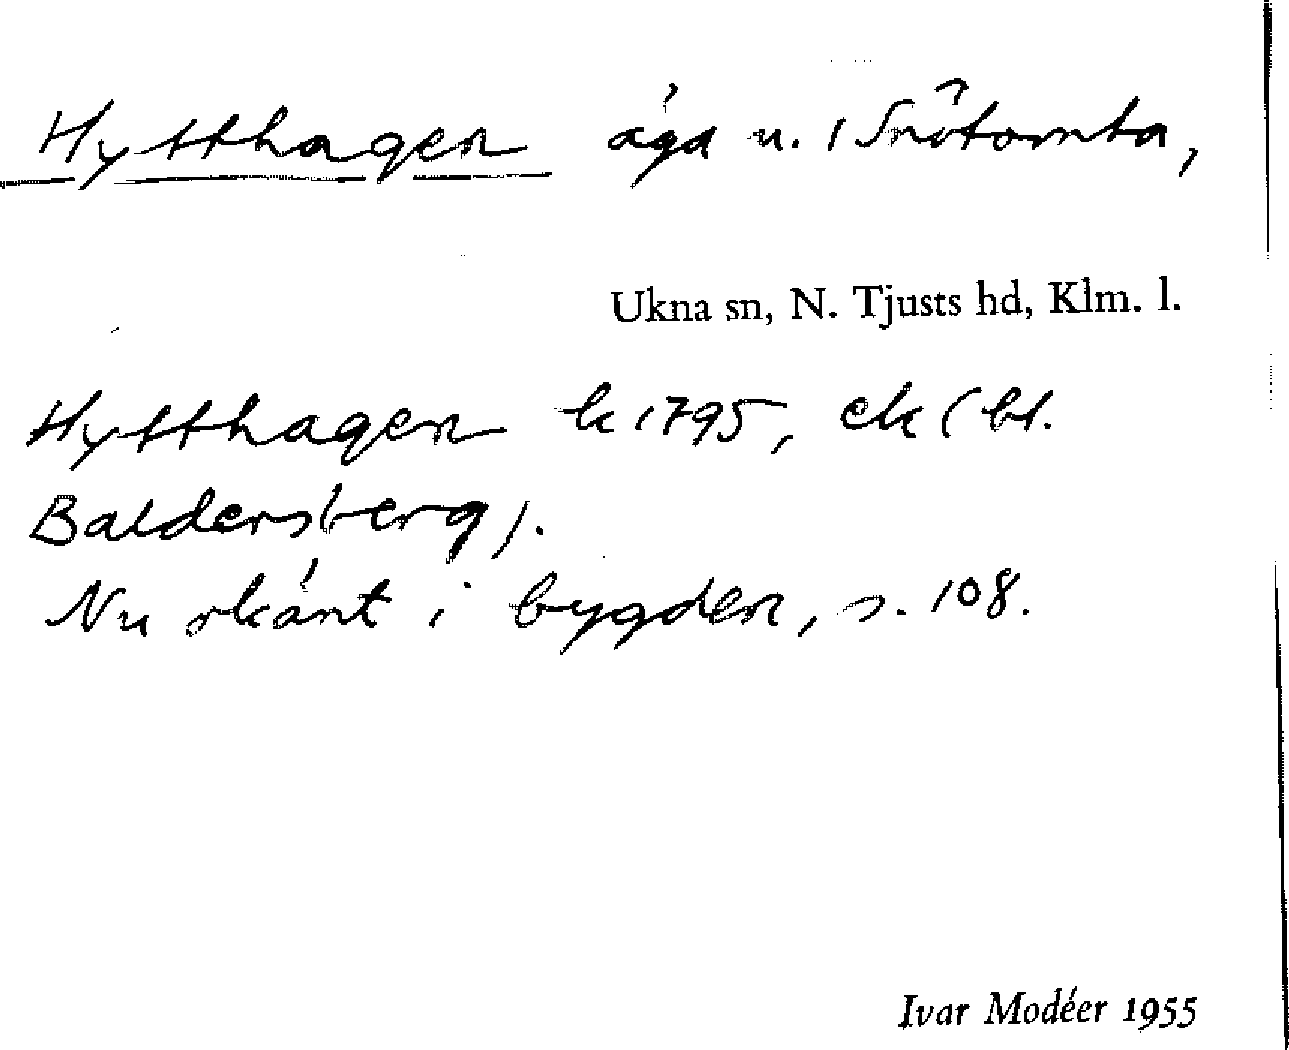 Hytthagen äga u. / Snötomta,
Ukna sn, N. Tjusts hd, Klm. l.
Hytthagen k 1795, ek (bl.
Baldersberg).
Nu okänt i bygden, s. 108.
Ivar Modéer 1955